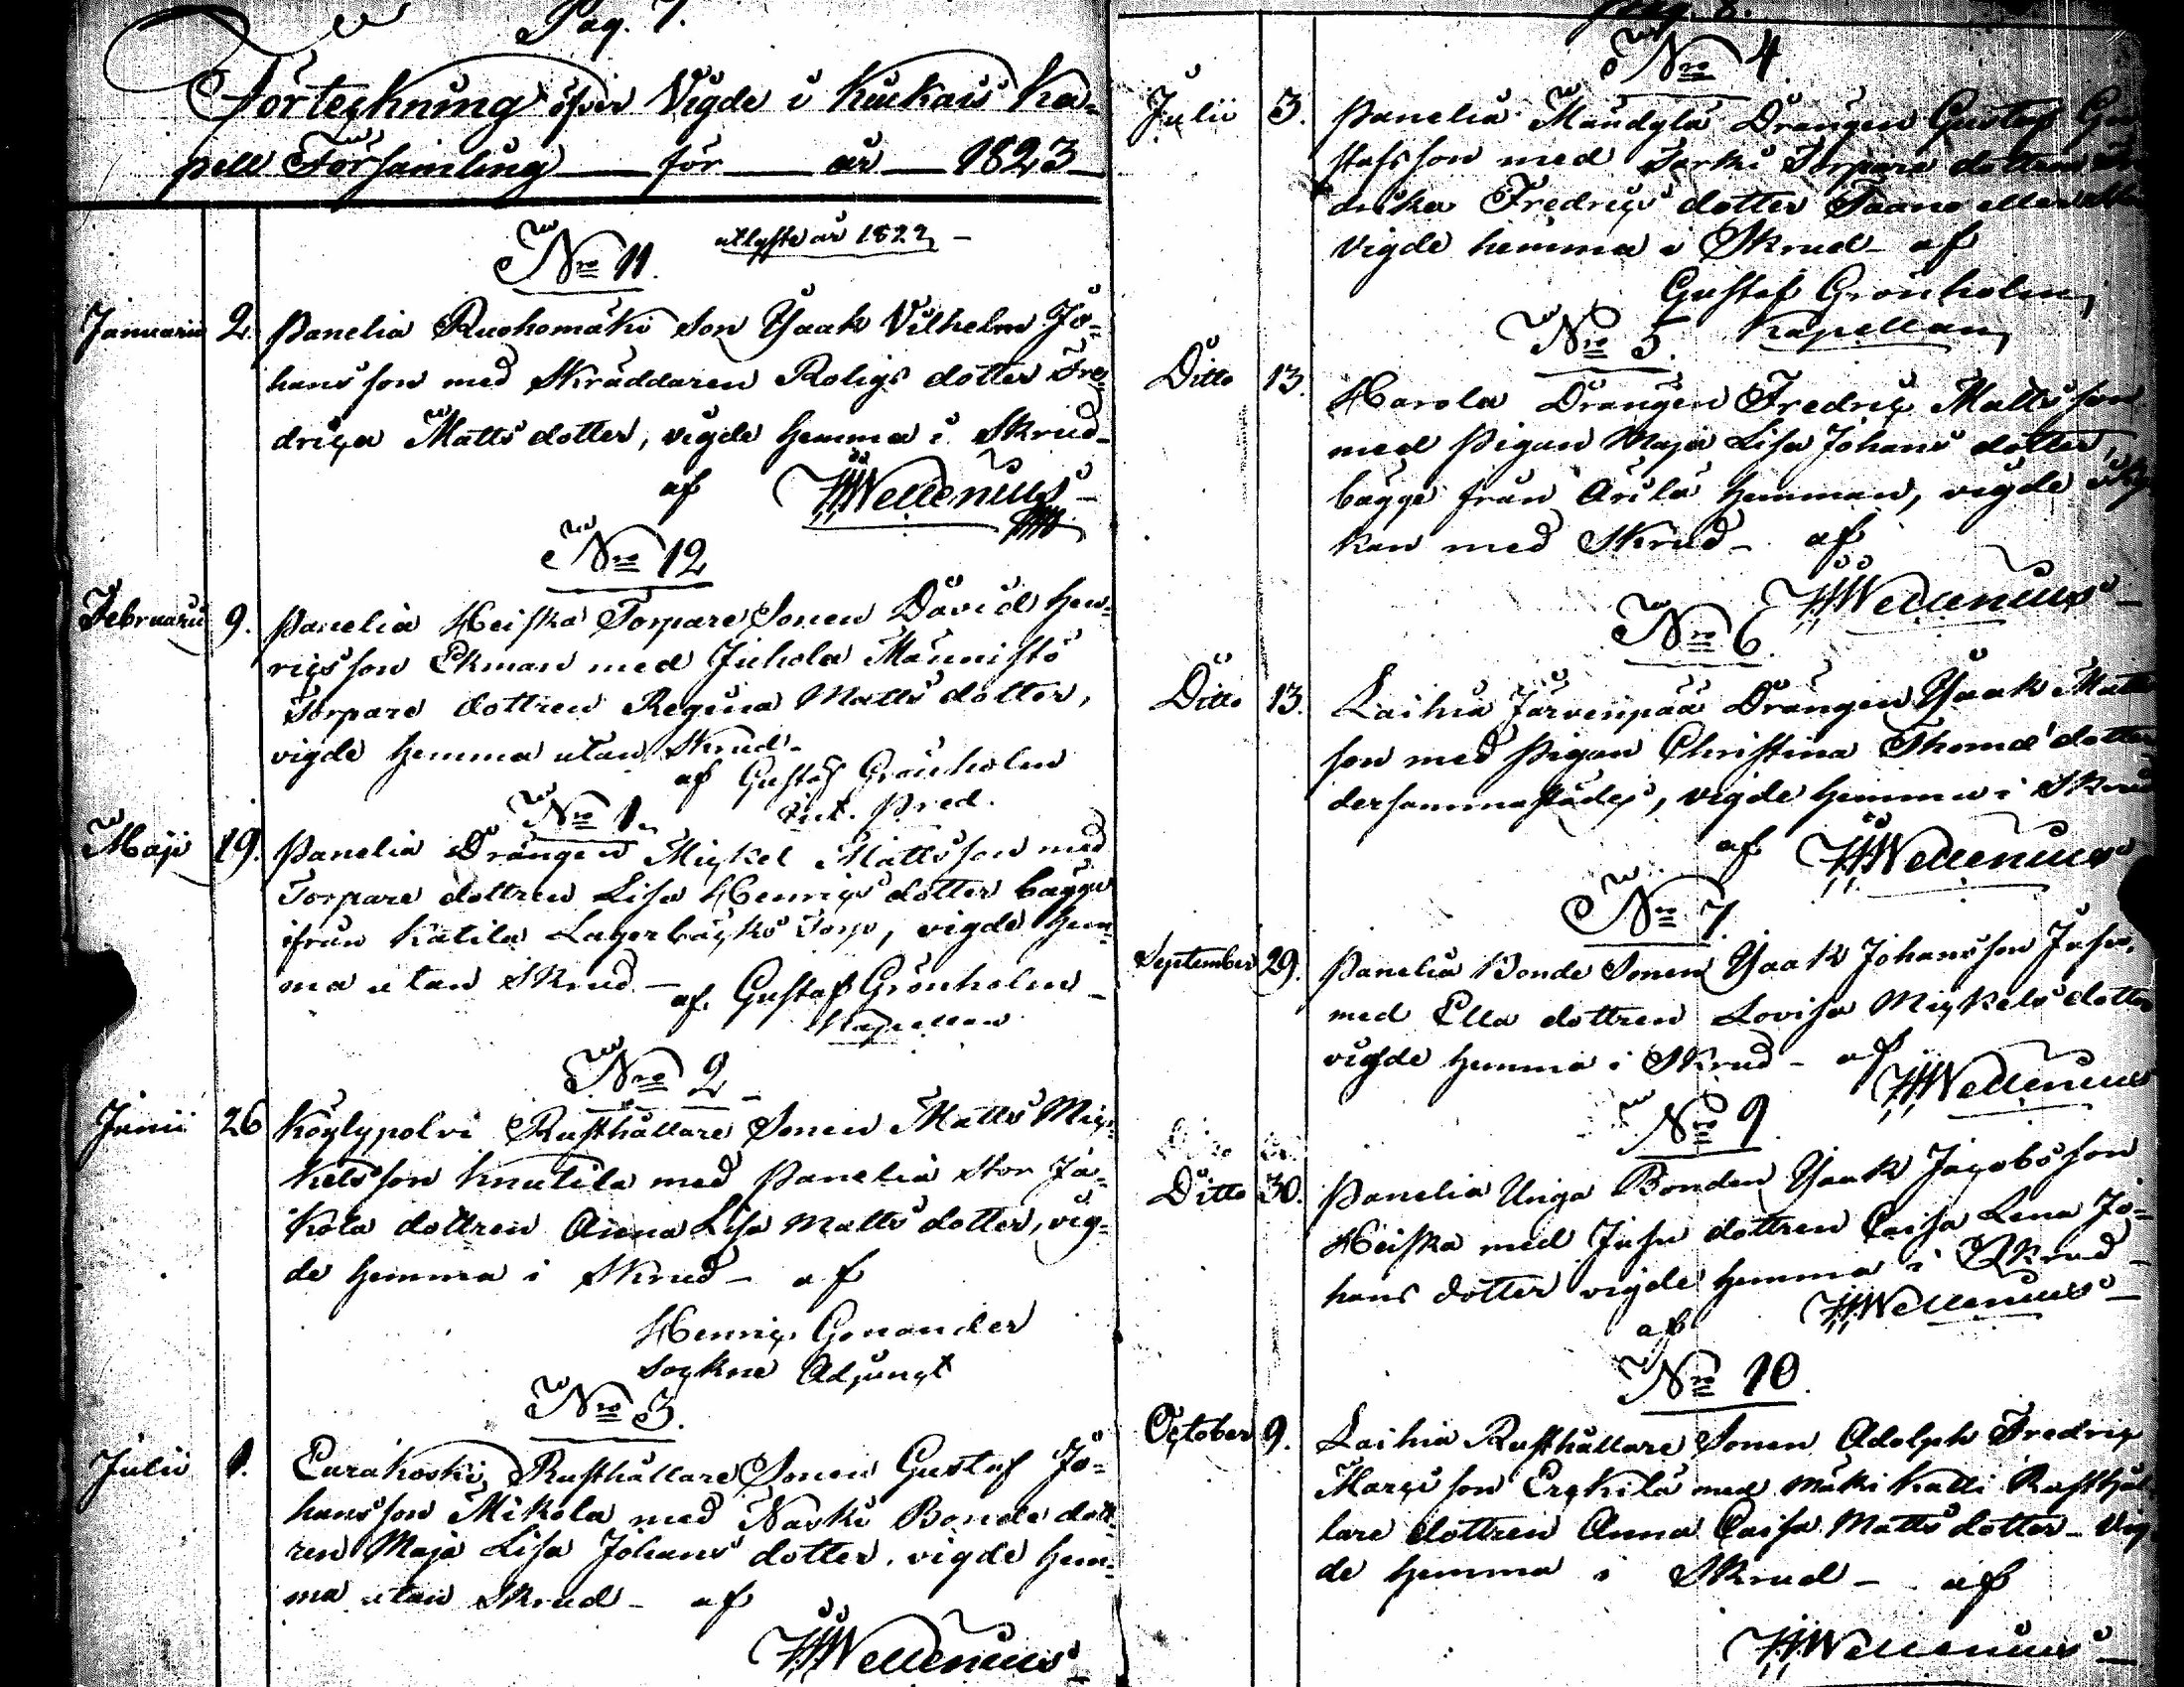 Pag. 7.
Förteckning öfver Vigde i Kiukais Ka-
pell Församling för år 1823
No 11. utlyste år 1822
Januarii 2. Panelia Ruohomäki Son Isaak Vilhelm Jo-
hansson med Skräddaren Roligs dotter Fre-
drica Matts dotter, vigde hemma i Skrud
af HHWellenius
No 12
Februarii 9. Panelia Heiska Torpare Sonen David Hen-
ricsson Ekman med Juhola Männistö
Torpare dottren Regina Matts dotter,
vigde hemma utan Skrud
af Gustaf Grönholm
Vict. Pred.
No 1.
Maji 19. Panelia Drängen Mickel Mattsson med
Torpare dottren Lisa Henrics dotter bägge
ifrån Katila Lagerbäcks Torp, vigde hem-
ma utan Skrud
af Gustaf Grönholm
Kapellan
No 2
Junii 26 Köylypolvi Rusthållare Sonen Matts Mic-
kelsson Knutila med Panelia Stor Ja-
kola dottren Anna Lisa Matts dotter, vig-
de hemma i Skrud - af
Henric Gonander
Sockne Adjunct
No 3.
Julii 1. Eurakoski Rusthållare Sonen Gustaf Jo-
hansson Mikola med Naski Bonde dott-
ren Maja Lisa Johans dotter, vigde hem-
ma utan Skrud - af
HHWellenius
Pag. 8.
No 4
Julii 3. Panelia Mäudylä Drängen Gustaf Gu-
stafsson med Torpare dottren
Fredrics dotter
vigde hemma i Skrud af
Gustaf Grönholm
Kapellan
No 5.
Ditto 13. Harola Drängen Fredric Mattsson
med Pigan Maja Lisa Johans dotter,
bägge från Arila hemman, vigde i Kyr-
kan med Skrud - af
HHWellenius
No 6.
Ditto 13. Laihia Järvenpää Drängen Isaak Matts
son med Pigan Christina Thomæ dotter
dersammastädes, vigde hemma i Skrud
af HHWellenius
No 7.
September 29. Panelia Bonde Sonen Isaak Johansson Juho,
med Ella dottren Lovisa Mickels dotter
vigde hemma i Skrud - af
HHWellenius
No 9.
Ditto 30. Panelia Unga Bonden Isaak Jacobsson
Heiska med Juhu dottren Caisa Lena Jo-
hans dotter vigde hemma i Skrud
af HHWellenius
No 10.
October 9. Laihia Rusthållare Sonen Adolph Fredric
Marcisson Erckilä med Mäki Katti Rusthål-
lare dottren Anna Caisa Matts dotter - vig
de hemma i Skrud - af
HHWellenius